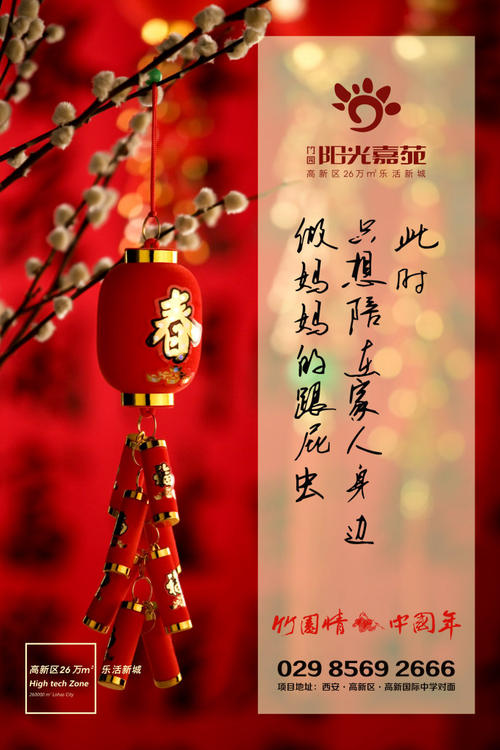 竹园
阳光嘉苑
高新区26万㎡乐活新城
此时
只想陪在家人身边
做妈妈的跟屁虫
春
福
竹園情 中國年
029 8569 2666
项目地址：西安·高新区·高新国际中学对面
高新区26万㎡ 乐活新城
High tech Zone
260000 ㎡ Lohas City